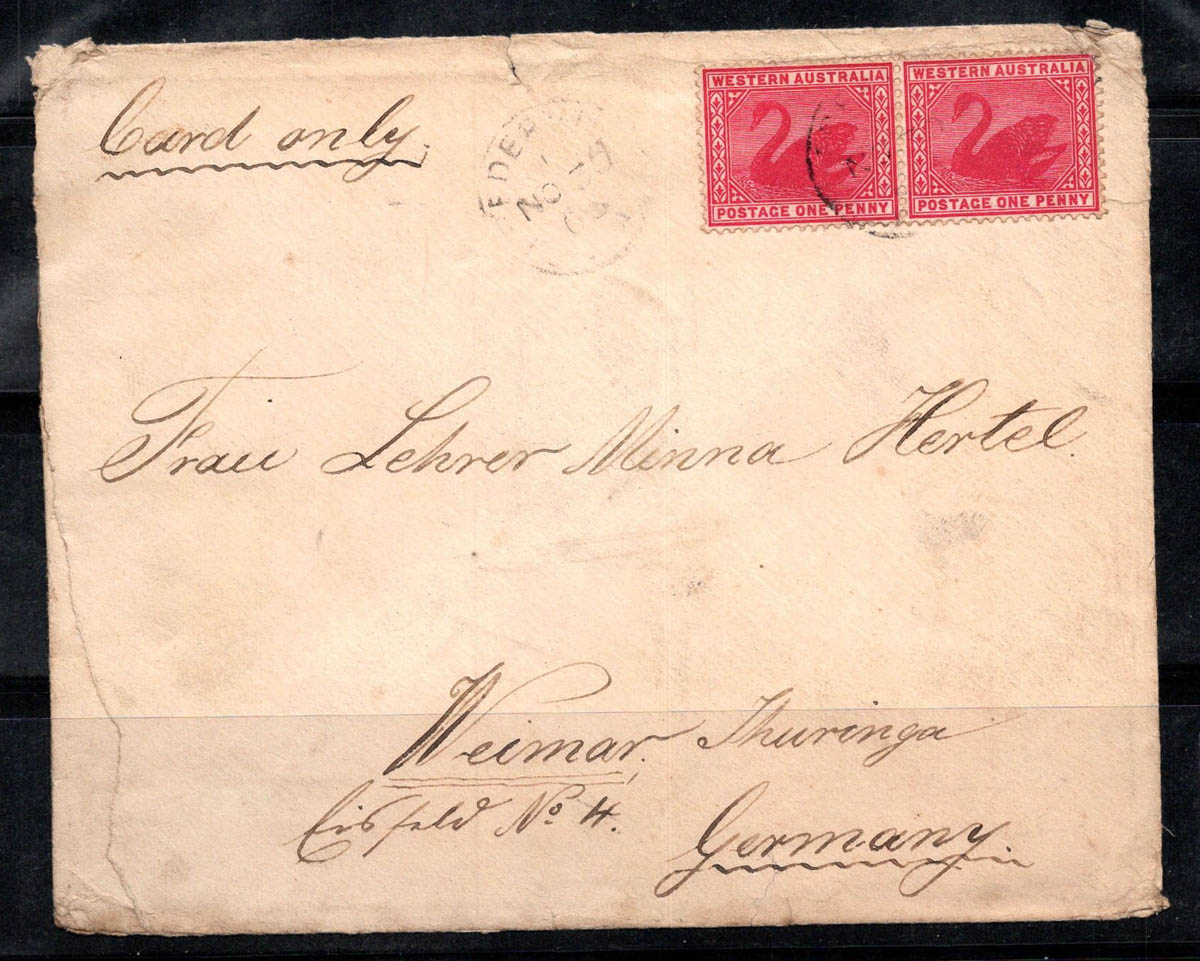 Card only.
WESTERN AUSTRALIA
POSTAGE ONE PENNY
WESTERN AUSTRALIA
POSTAGE ONE PENNY
NO
Frau Lehrer Minna Hertel.
Weimar, Thuringa
Eisfeld No 4.
Germany